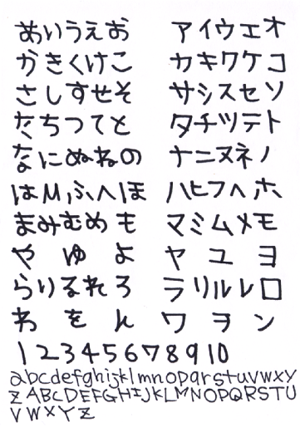 あいうえお アイウエオ
かきくけこ カキクケコ
さしすせそ サシスセソ
たちつてと タチツテト
なにぬねの ナニヌネノ
はひふへほ ハヒフヘホ
まみむめも マミムメモ
や ゆ よ ヤ ユ ヨ
らりるれろ ラリルレロ
わ を ん ワ ヲ ン
12345678910
abcdefghijklmnopqrstuvwxy
zABCDEFGHIJKLMNOPQRSTU
VWXYZ